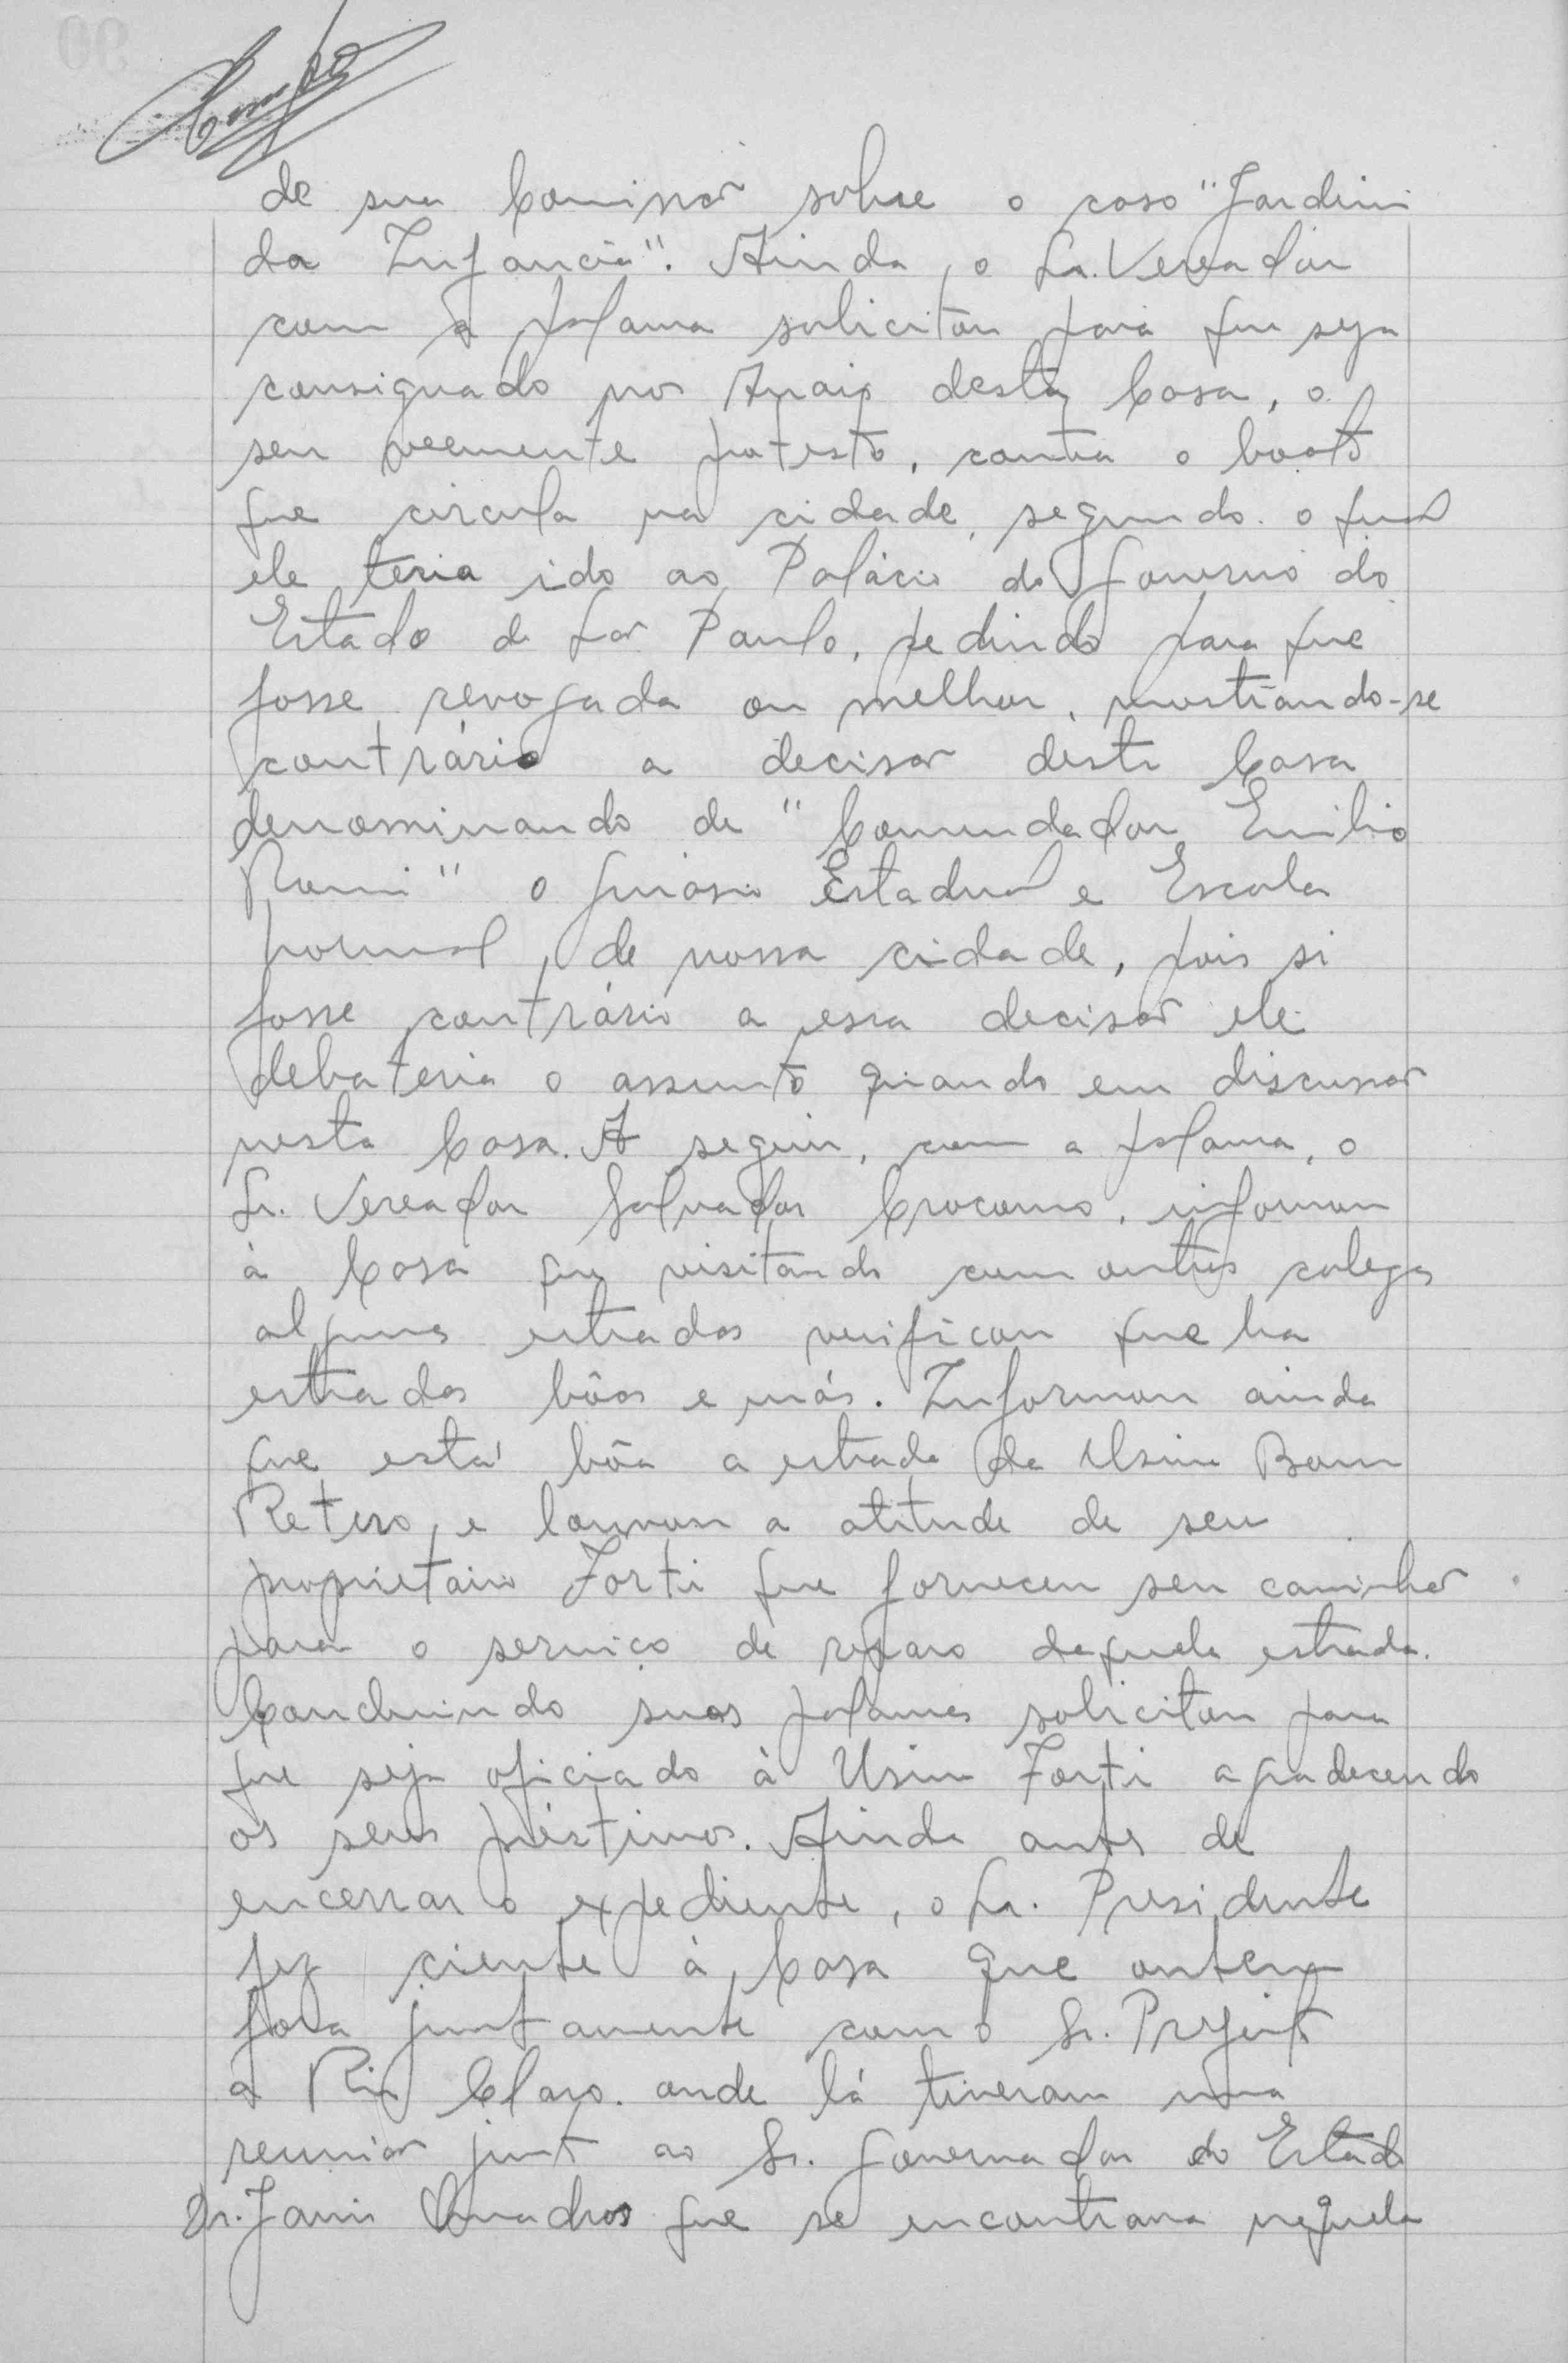 de sua Comissão sobre o caso "Jardim
da Infancia". Ainda, o Sr. Vereador
com a palavra solicitou para que seja
consignado nos Anais desta Casa, o
seu veemente protesto, contra o boato
que circula na cidade, segundo o qual
ele teria ido ao Palácio do Governo do
Estado de São Paulo, pedindo para que
fosse revogada ou melhor, mostrando-se
contrário a decisão desta Casa
denominando de "Comendador Emilio
Romi" o Ginásio Estadual e Escola
Normal, de nossa cidade, pois si
fosse contrário a essa decisão ele
debateria o assunto quando em discussão
nesta Casa. A seguir, com a palavra, o
Sr. Vereador Salvador informou
à Casa que visitando com outros colegas
algumas estradas verificou que ha
estradas bôas e más. Informou ainda
que está bôa a estrada da Usina Bom
Retiro, e louvou a atitude de seu
proprietario Forti que forneceu seu caminhão
para o serviço de reparo daquela estrada.
Concluindo suas palavras solicitou para
que seja oficiado à Usina Forti agradecendo
os seus préstimos. Ainda antes de
encerrar o expediente, o Sr. Presidente
fez ciente à Casa que ontem
fora juntamente com o Sr. Prefeito
a Rio Claro. onde lá tiveram uma
reunião junto ao Sr. Governador do Estado
Dr. Janio Quadros que se encontrava naquela